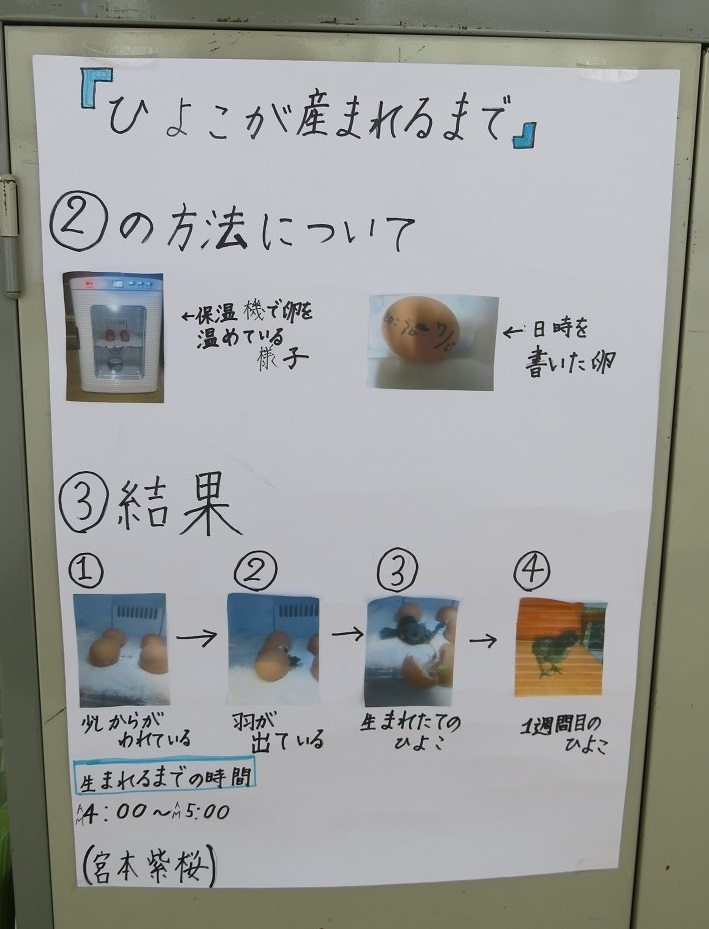 『ひよこが産まれるまで』
②の方法について
←保温機で卵を
温めている
様子
←日時を
書いた卵
③結果
① ② ③ ④
→ → →
少しからが
われている
羽が
出ている
生まれたての
ひよこ
1週間目の
ひよこ
生まれるまでの時間
AM4:00〜AM5:00
(宮本紫桜)